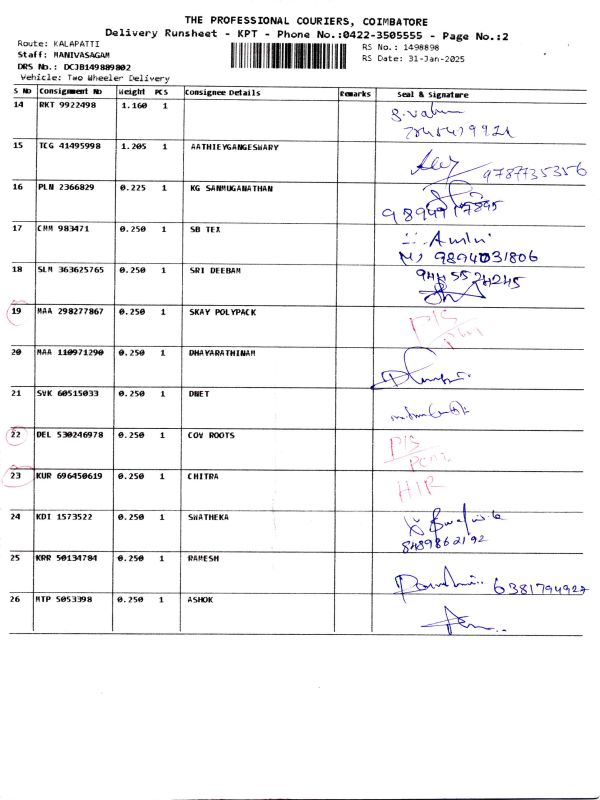 THE PROFESSIONAL COURIERS, COIMBATORE
Delivery Runsheet - KPT - Phone No.:0422-3505555 - Page No.:2
Route: KALAPATTI RS No.: 1498898
Staff: MANIVASAGAM RS Date: 31-Jan-2025
DRS No.: DCJB149889802
Vehicle: Two Wheeler Delivery
S No Consignment No Weight PCS Consignee Details Remarks Seal & Signature
14 RKT 9922498 1.160 1
15 TCG 41495998 1.205 1 AATHIEYGANGESWARY
9787735356
16 PLN 2366829 0.225 1 KG SANMUGANATHAN
17 CMM 983471 0.250 1 SB TEX
9894031806
18 SLM 363625765 0.250 1 SRI DEEBAM
9445524245
19 MAA 298277867 0.250 1 SKAY POLYPACK P/S
20 MAA 110971290 0.250 1 DHAYARATHINAM
21 SVK 60515033 0.250 1 DNET
22 DEL 530246978 0.250 1 COV ROOTS P/S
23 KUR 696450619 0.250 1 CHITRA
24 KDI 1573522 0.250 1 SWATHEKA
8489862192
25 KRR 50134784 0.250 1 RAMESH
6381794927
26 MTP 5053398 0.250 1 ASHOK